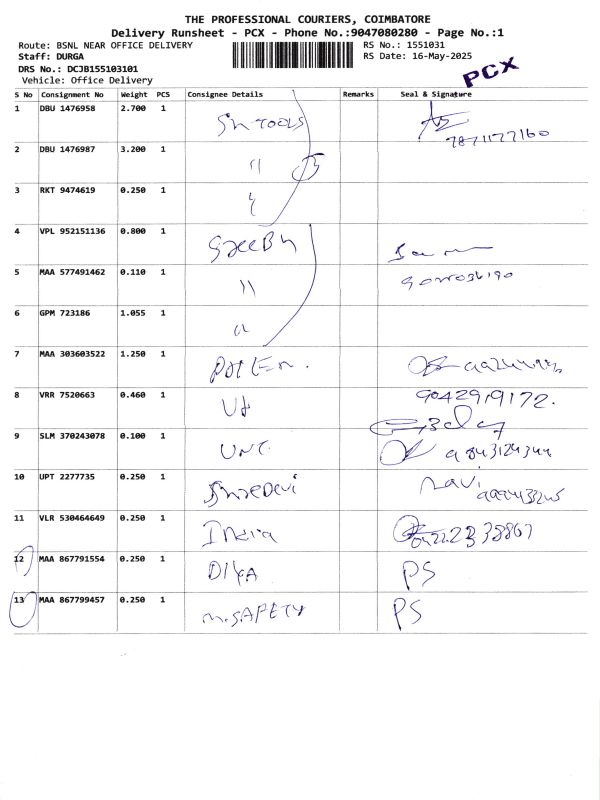 THE PROFESSIONAL COURIERS, COIMBATORE
Delivery Runsheet - PCX - Phone No.:9047080280 - Page No.:1
Route: BSNL NEAR OFFICE DELIVERY RS No.: 1551031
Staff: DURGA RS Date: 16-May-2025
DRS No.: DCJB155103101
Vehicle: Office Delivery
PCX
S No Consignment No Weight PCS Consignee Details Remarks Seal & Signature
1 DBU 1476958 2.700 1 TOOLS
7871177160
2 DBU 1476987 3.200 1 "
3 RKT 9474619 0.250 1
4 VPL 952151136 0.800 1
5 MAA 577491462 0.110 1 "
6 GPM 723186 1.055 1
7 MAA 303603522 1.250 1
8 VRR 7520663 0.460 1 9042919172.
9 SLM 370243078 0.100 1 9843124344
10 UPT 2277735 0.250 1 Sreedevi Ravi
11 VLR 530464649 0.250 1 India
12 MAA 867791554 0.250 1 DIYA PS
13 MAA 867799457 0.250 1 M.SAFETY PS